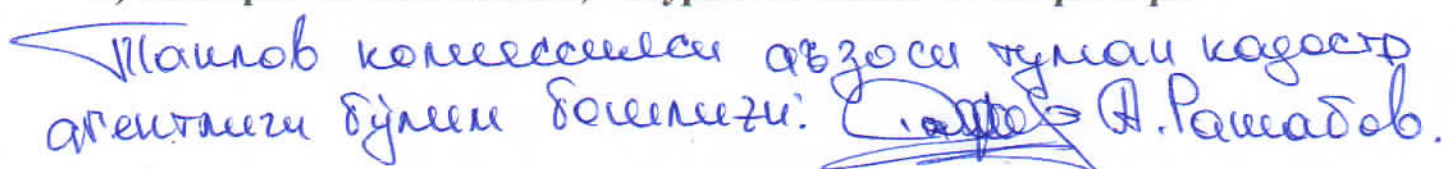 Танлов комиссияси аъзоси туман кадастр
агентлиги бўлим бошлиғи: А. Ражабов.